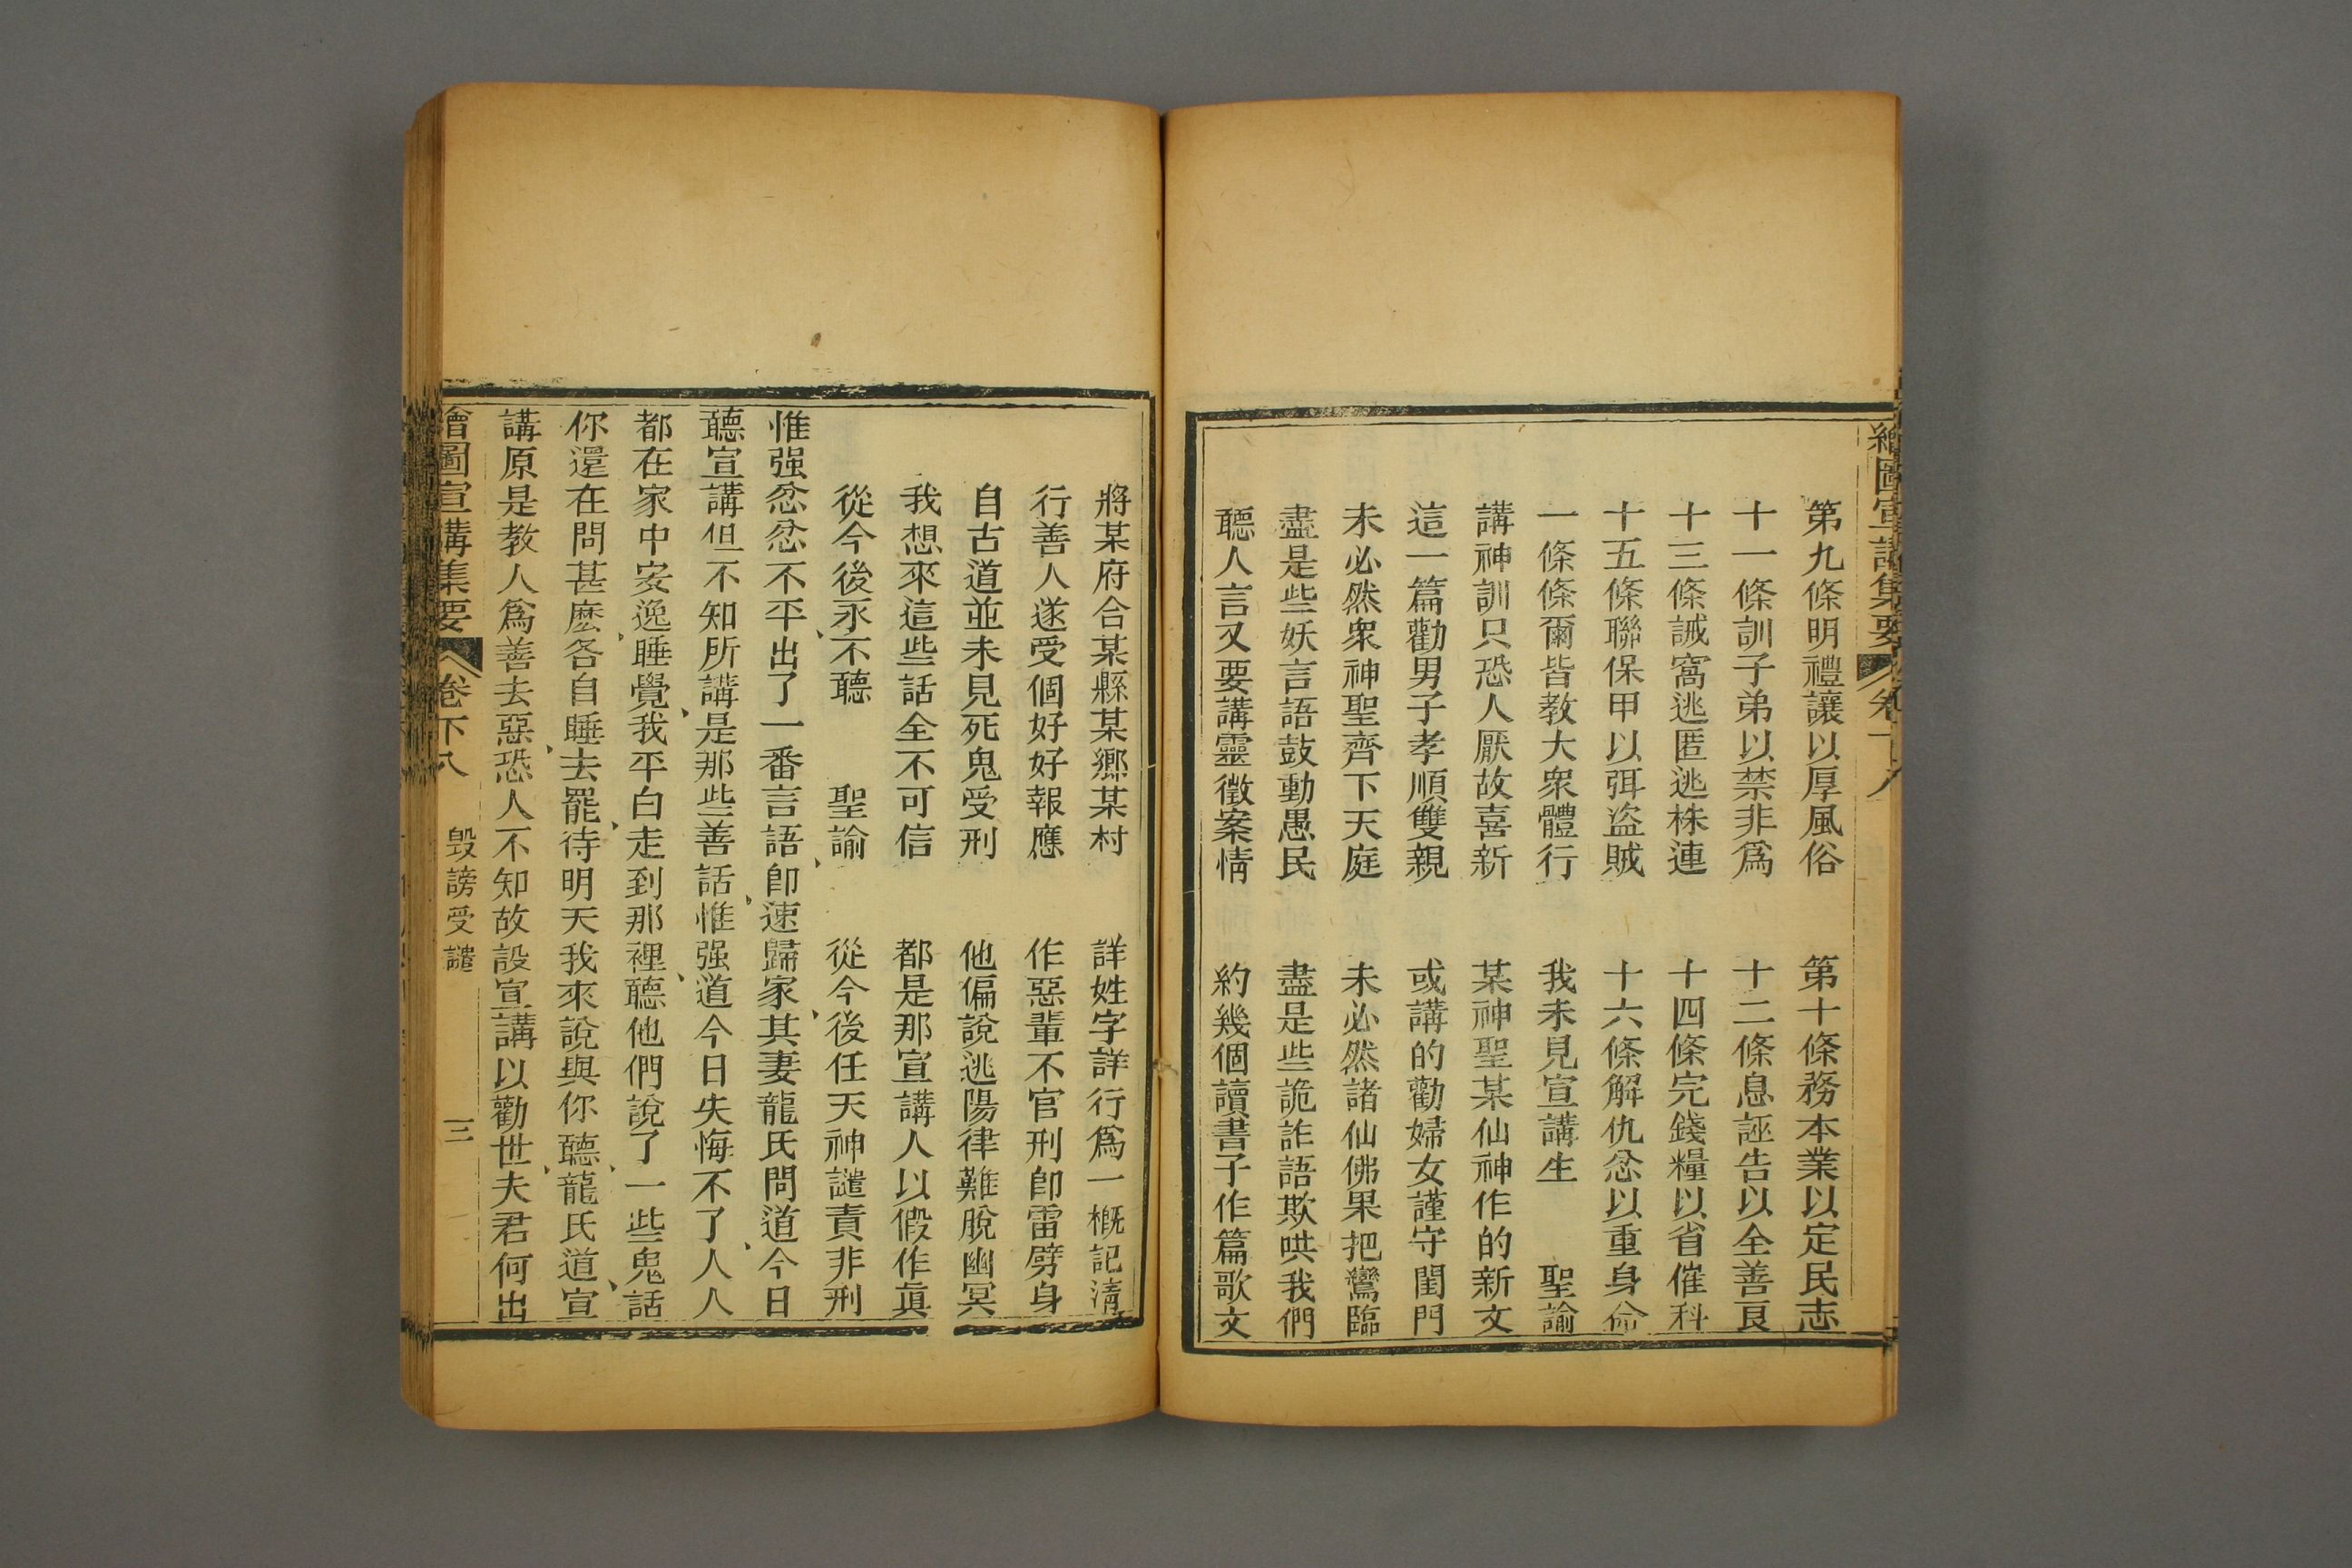 繪圖宣講集要
第九條明禮讓以厚風俗　第十條務本業以定民志
十一條訓子弟以禁非爲　十二條息誣告以全善良
十三條誡窩逃匿逃株連　十四條完錢糧以省催科
十五條聯保甲以弭盜賊　十六條解仇忿以重身命
一條條爾皆教大衆體行　我未見宣講生　聖諭
講神訓只恐人厭故喜新　某神聖某仙神作的新文
這一篇勸男子孝順雙親　或講的勸婦女謹守閨門
未必然衆神聖齊下天庭　未必然諸仙佛果把鸞臨
盡是些妖言語鼓動愚民　盡是些詭詐語欺哄我們
聽人言又要講靈徵案情　約幾個讀書子作篇歌文
將某府合某縣某鄉某村　詳姓字詳行爲一概記清
行善人遂受個好好報應　作惡輩不官刑卽雷劈身
自古道並未見死鬼受刑　他偏說逃陽律難脫幽冥
我想來這些話全不可信　都是那宣講人以假作眞
從今後永不聽　聖諭　從今後任天神譴責非刑
惟强忿忿不平、出了一番言語、卽速歸家、其妻龍氏問道、今日
聽宣講但不知所講是那些善話、惟强道今日失悔不了、人人
都在家中安逸睡覺、我平白走到那裡、聽他們說了一些鬼話
你還在問甚麽、各自睡去罷、待明天我來說與你聽、龍氏道、宣
講原是教人爲善去惡、恐人不知故設宣講以勸世、夫君何出
繪圖宣講集要　卷下八　毀謗受譴　三